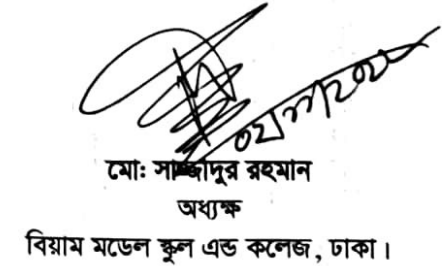 মো: সাজ্জাদুর রহমান
অধ্যক্ষ
বিয়াম মডেল স্কুল এন্ড কলেজ, ঢাকা।